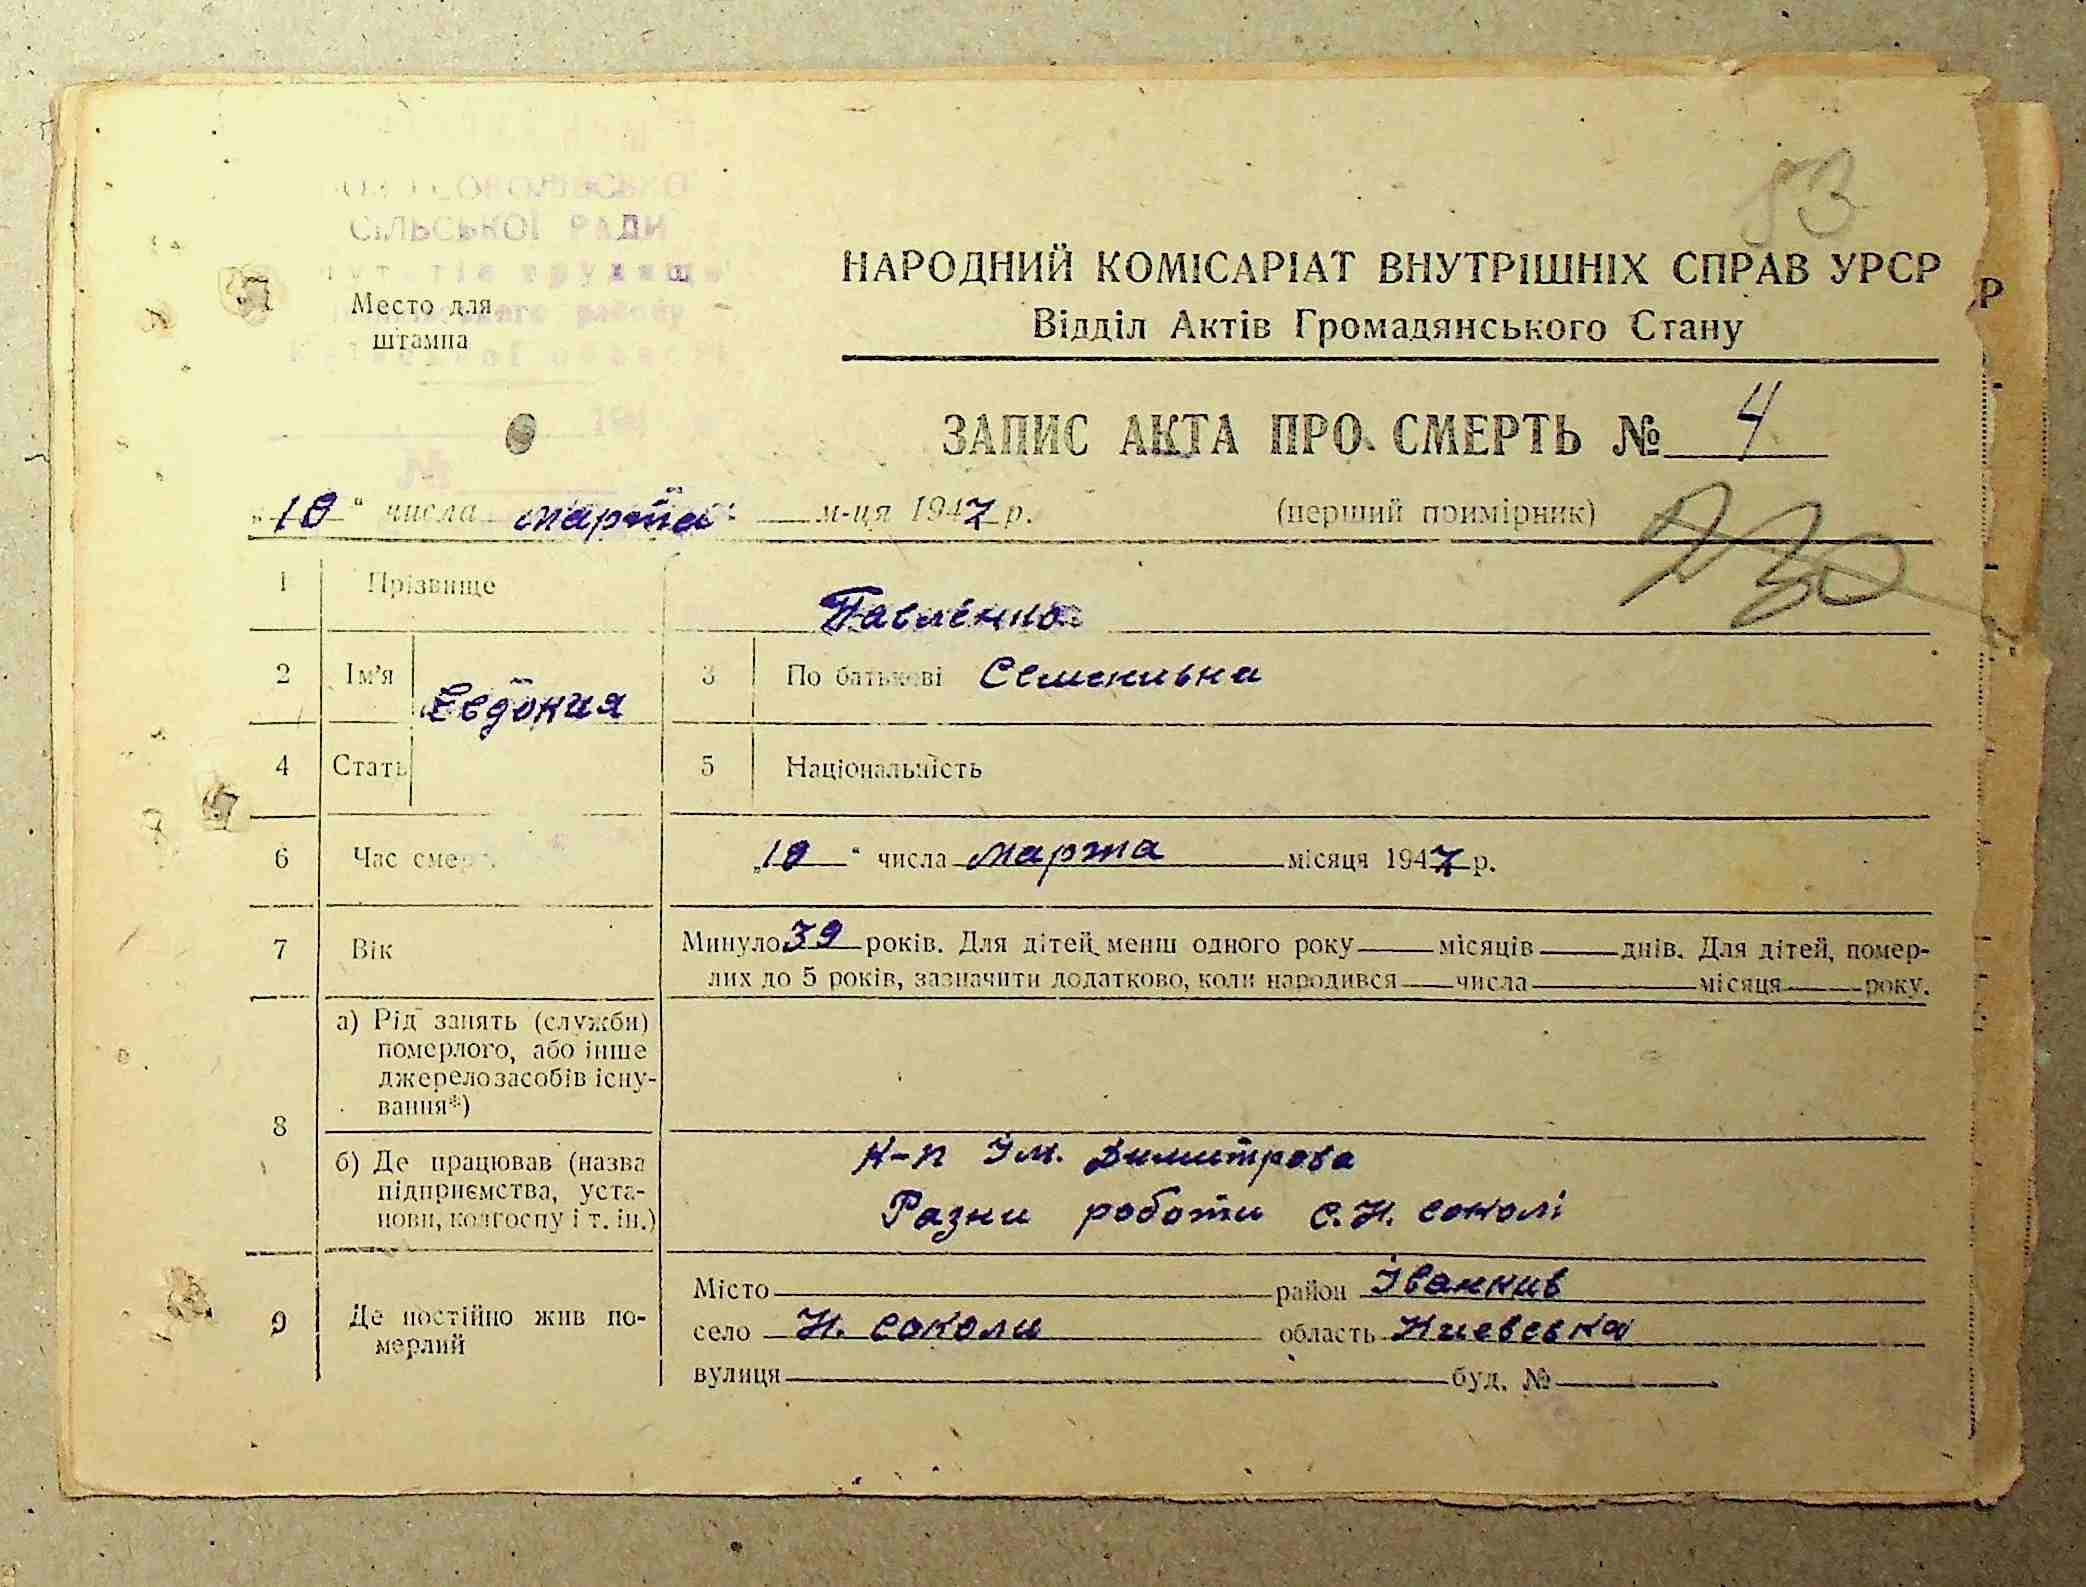 83
СІЛЬСЬКОЇ РАДИ
Место для
штампа
НАРОДНИЙ КОМІСАРІАТ ВНУТРІШНІХ СПРАВ УРСР
Відділ Актів Громадянського Стану
ЗАПИС АКТА ПРО СМЕРТЬ № 4
„10“ числа марта м-ця 1947 р. (перший примірник)
230
1 Прізвище Павленко
2 Ім'я Евдокия 3 По батькові Семенивна
4 Стать 5 Національність
6 Час смерт „10“ числа марта місяця 1947 р.
7 Вік Минуло 39 років. Для дітей менш одного року місяців днів. Для дітей, помер-
лих до 5 років, зазначити додатково, коли народився числа місяця року.
8 а) Рід занять (служби)
померлого, або інше
джерело засобів існу-
вання*)
б) Де працював (назва
підприємства, уста-
нови, колгоспу і т. ін.)
К-п Ім. Димитрова
Разни роботи с. Н. соколі
9 Де постійно жив по-
мерлий
Місто район Іванкив
село Н. соколи область Киевська
вулиця буд. №